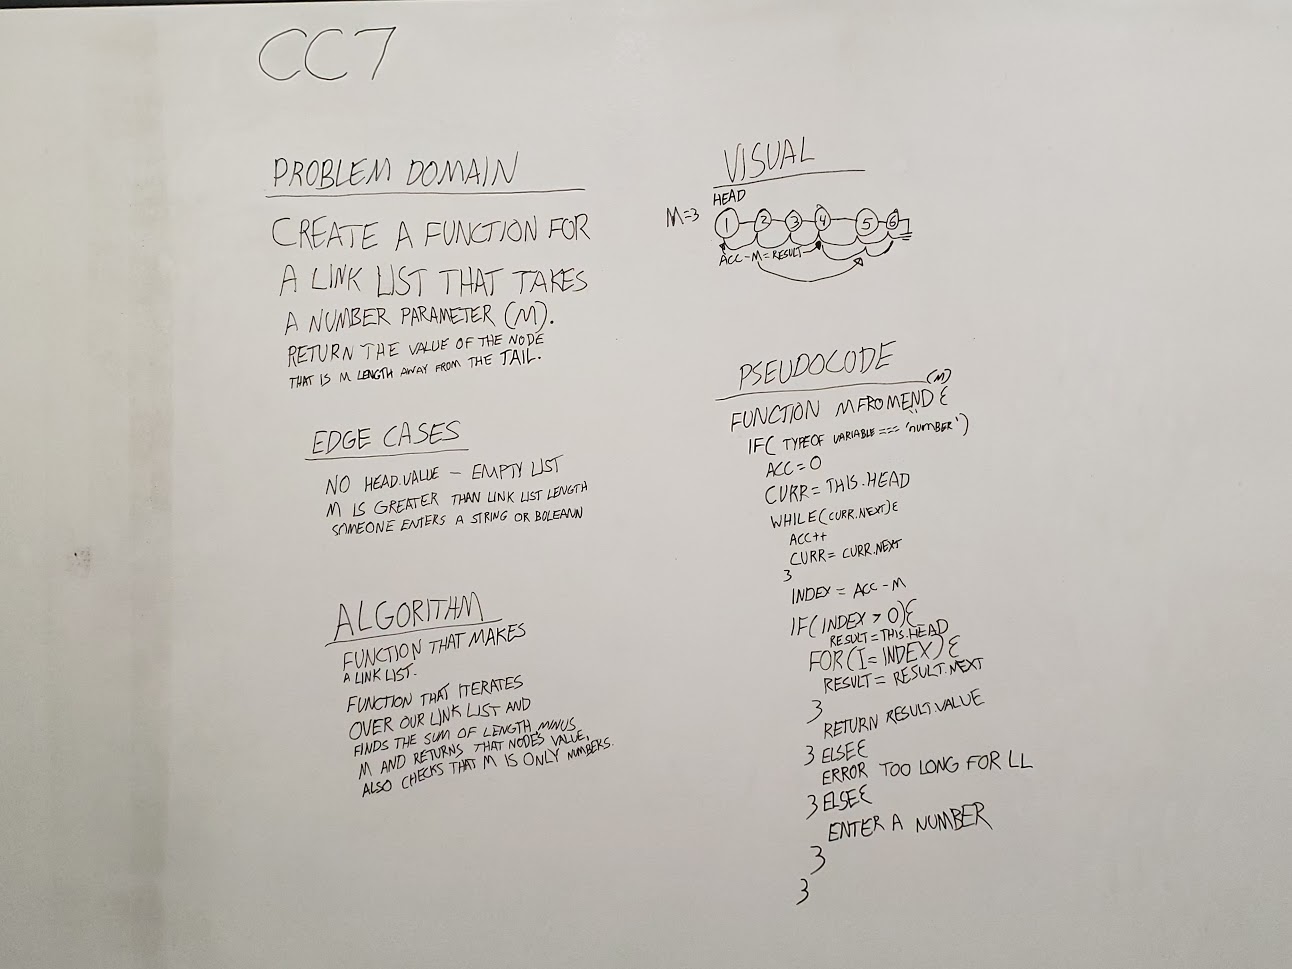 CC7
PROBLEM DOMAIN
CREATE A FUNCTION FOR
A LINK LIST THAT TAKES
A NUMBER PARAMETER (M).
RETURN THE VALUE OF THE NODE
THAT IS M LENGTH AWAY FROM THE TAIL.
EDGE CASES
NO HEAD.VALUE - EMPTY LIST
M IS GREATER THAN LINK LIST LENGTH
SOMEONE ENTERS A STRING OR BOLEANN
ALGORITHM
FUNCTION THAT MAKES
A LINK LIST.
FUNCTION THAT ITERATES
OVER OUR LINK LIST AND
FINDS THE SUM OF LENGTH MINUS
M AND RETURNS THAT NODES VALUE,
ALSO CHECKS THAT M IS ONLY NUMBERS.
VISUAL
HEAD
M=3 1 2 3 4 5 6
ACC-M=RESULT
PSEUDOCODE
(M)
FUNCTION MFROMEND {
IF( TYPEOF VARIABLE === 'NUMBER')
ACC=0
CURR=THIS.HEAD
WHILE(CURR.NEXT){
ACC++
CURR=CURR.NEXT
}
INDEX = ACC-M
IF(INDEX > 0){
RESULT=THIS.HEAD
FOR(I=INDEX){
RESULT=RESULT.NEXT
}
RETURN RESULT.VALUE
} ELSE{
ERROR TOO LONG FOR LL
} ELSE{
ENTER A NUMBER
}
}